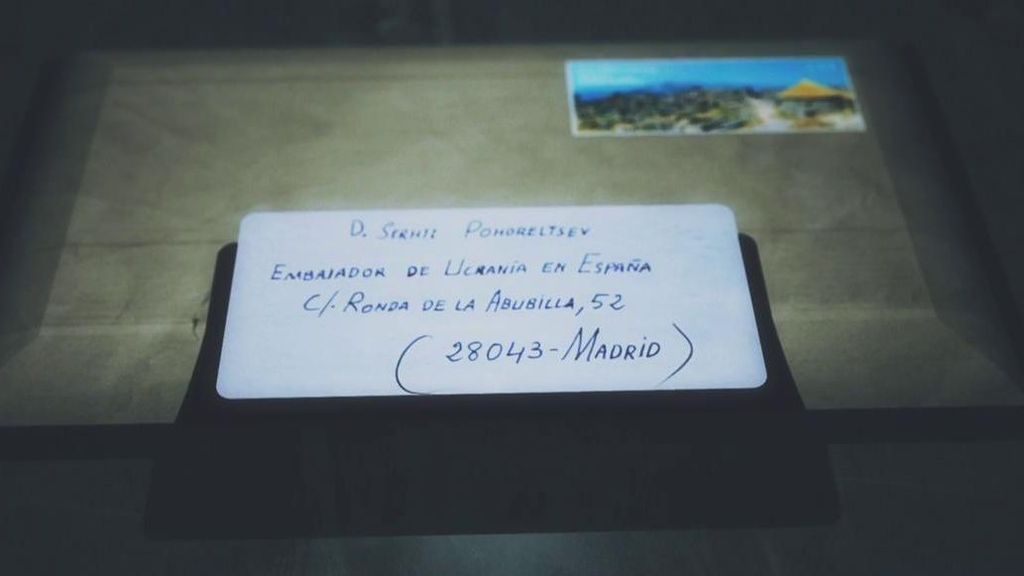 D. SERHII POHORELTSEV
EMBAJADOR DE UCRANÍA EN ESPAÑA
C/. RONDA DE LA ABUBILLA, 52
(28043-MADRID)